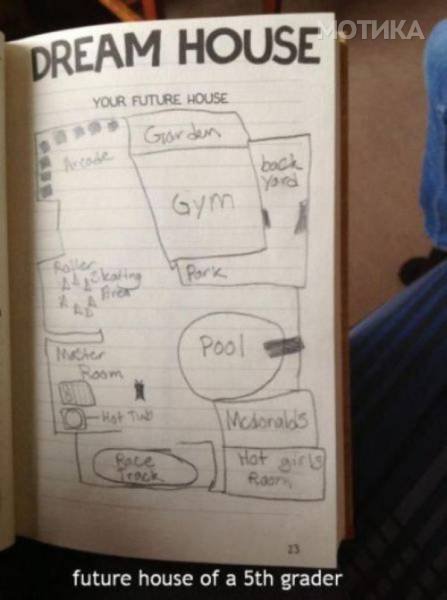 МОТИКА
DREAM HOUSE
YOUR FUTURE HOUSE
Garden
Arcade
back
yard
Gym
Park
Roller
Skating
Area
Pool
Master
Room
Hot Tub
Mcdonalds
Race
Track
Hot girls
Room
23
future house of a 5th grader